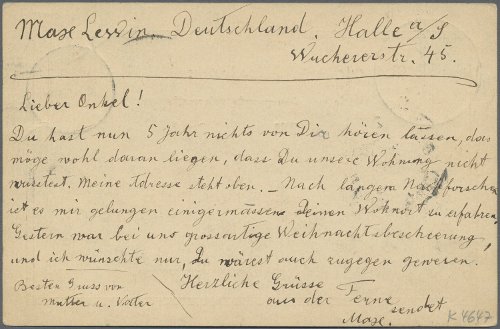 Max Lewin. Deutschland. Halle a/S
Wuchererstr. 45.
Lieber Onkel!
Du hast nun 5 Jahr nichts von Dir hören lassen, das
möge wohl daran liegen, dass Du unsere Wohnung nicht
wusstest. Meine Adresse steht oben. – Nach langem Nachforschen
ist es mir gelungen einigermassen Deinen Wohnort zu erfahren.
Gestern war bei uns grossartige Weihnachtsbescheerung,
und ich wünschte nur, Du wärest auch zugegen gewesen.
Besten Gruss von
Mutter u. Vater
Herzliche Grüsse
aus der Ferne
sendet
Max.
K 4647